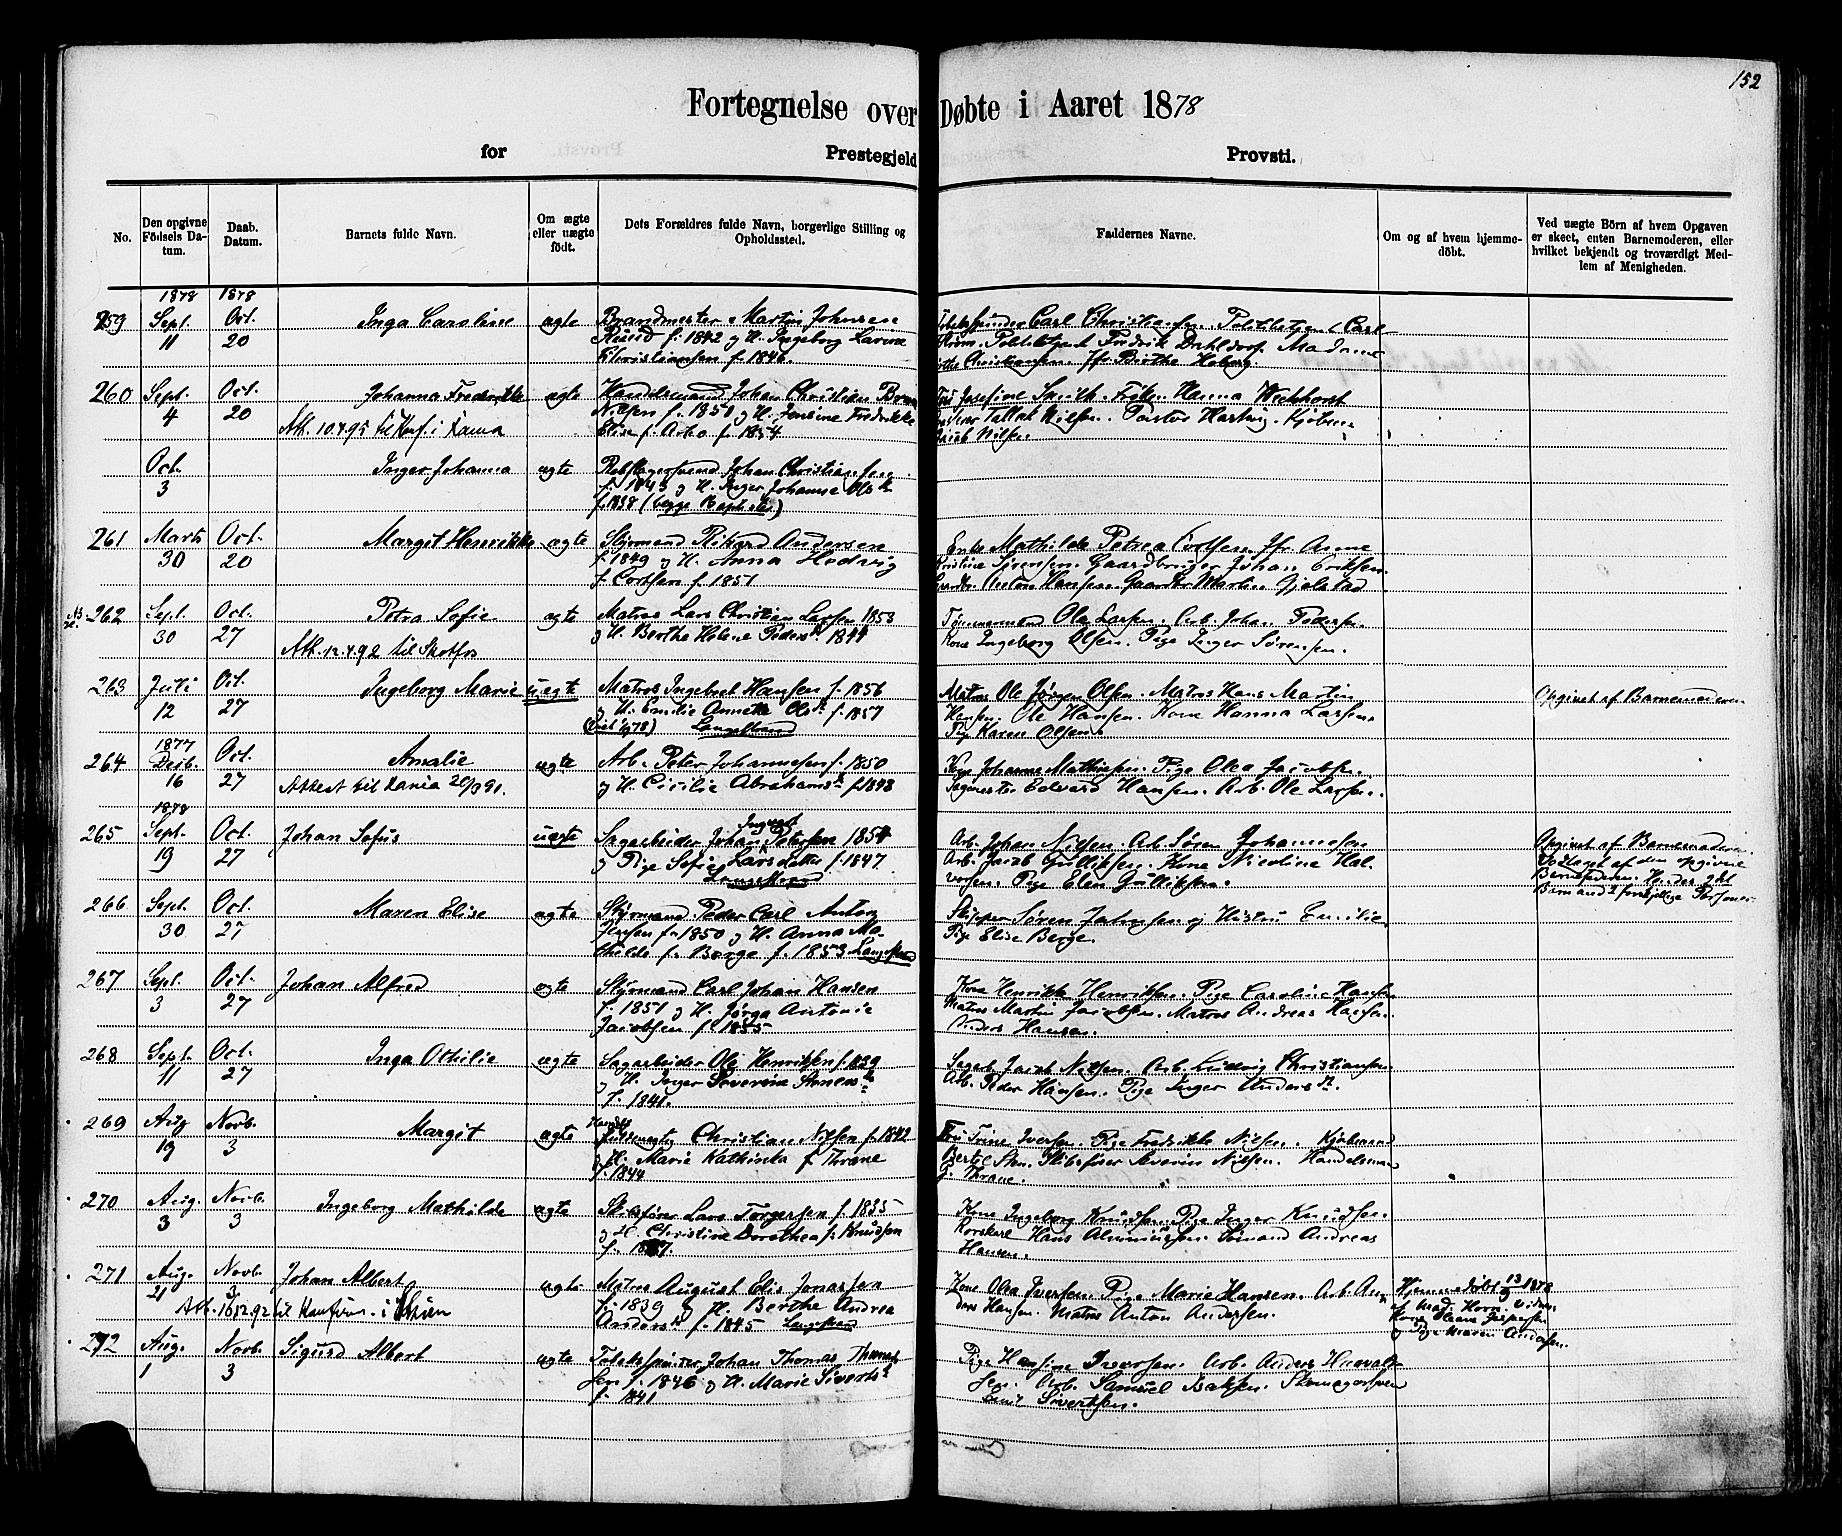 152
Fortegnelse over Døbte i Aaret 1878
for Prestegjeld Provsti.
No.
Den opgivne Födsels Da-tum.
Daab. Datum.
Barnets fulde Navn.
Om ægte eller uægte födt.
Dets Forældres fulde Navn, borgerlige Stilling og Opholdssted.
Faddernes Navne.
Om og af hvem hjemme-döbt.
Ved uægte Börn af hvem Opgaven er skeet, enten Barnemoderen, eller hvilket bekjendt og troværdigt Med-lem af Menigheden.
1878 1878
259 Sept. Oct. Inga Caroline ægte Brandmester Martin Johnsen Carl Christiansen. Politibetjent Carl
11 20 f. 1842 og H. Ingeborg Lavine Strøm. Politibetjent Fredrik Dahldorf. Madame
Christiansen f. 1846. Christiansen. Jfr Birthe Hoberg.
260 Sept. Oct. Johanna Fredrikke ægte Handelsmand Johan Christian Josefine Smith. Frøken Hanna
4 20 Nilsen f. 1851 og H. Jensine Fredrikke Tallak Nilsen. Pastor Hartvig. Kjøbm.
Att. 10.4.95 til Konf. i Xania Elise f. Arbo f. 1854 Jacob Nilsen.
Oct. Inger Johanna ægte Rebslagersvend Johan Christiansen
3 f. 1843 og H. Inger Johanne Olsdr
f. 1838 (begge Baptister)
261 Marts Oct. Margit Henrikke ægte Styrmand Rikard Andersen Enke Mathilde Petrea Cortsen. Jfr Anne
30 20 f. 1849 og H. Anna Hedvig Kristine Sørensen. Gaardbruger Johan Eriksen.
f. Cortsen f. 1851 Anton Hansen. Gaardbr Martin Gjelstad
262 Sept. Oct. Petra Sofie ægte Matros Lars Christian Larsen 1853 Tømmermand Ole Larsen. Arb. Johan Pedersen.
30 27 og H. Berthe Helene Pedersdr 1844 Kone Ingeborg Olsen. Pige Inger Sørensen.
Att. 12.4.92 til Skotfos
263 Juli Oct. Ingeborg Marie uægte Matros Ingebret Hansen f. 1856 Matros Ole Jørgen Olsen. Matros Hans Martin Opgivet af Barnemoderen
12 27 og H. Emilie Annette Olsdr f. 1857 Hansen. Ole Hansen. Kone Hanna Larsen.
Langestrand Pige Karen Olsen.
1877
264 Decb. Oct. Amalie ægte Arb. Peter Johannesen f. 1850 Kone Johanne Mathisen. Pige Olea Jacobsen.
16 27 Attest til Xania 20/9 91. og H. Cicilie Abrahamsdr f. 1848 Sagmester Edvard Hansen. Arb. Ole Larsen.
1878
265 Sept. Oct. Johan Sofus uægte Sagarbeider Johan Ingvald Petersen 1854 Arb. Johan Nilsen. Arb. Søren Johannesen Opgivet af Barnemoderen.
19 27 og Pige Sofie Larsdatter f. 1847 Arb. Jacob Gulliksen. Kone Nicoline Hal- Vedtaget af den opgivne
Langestrand vorsen. Pige Elen Gulliksen. Barnefader. Hendes 3die
Barn med 2 forskjellige Personer
266 Sept. Oct. Maren Elise ægte Styrmand Peder Carl Anton Skipper Søren Jahnsen og Hustru Emilie
30 27 Jensen f. 1850 og H. Anna Ma- Pige Elise Berge.
thilde f. Berge f. 1853 Langestrand
267 Sept. Oct. Johan Alfred ægte Styrmand Carl Johan Hansen Kone Henrikke Henriksen. Pige Caroline Hansen
3 27 f. 1851 og H. Jørga Antonie Matros Martin Jacobsen. Matros Andreas Hansen.
Jacobsen f. 1855 Anders Hansen.
268 Sept. Oct. Inga Othilie ægte Sagarbeider Ole Henriksen f. 1839 Sagarb. Jacob Nilsen. Arb. Ludvig Christiansen
11 27 og H. Inger Severine f. 1841. Arb. Peder Hansen. Pige Inger Andersdr.
269 Aug. Novb. Margit ægte Handelsfuldmægtig Christian Nilsen f. 1842 Fru Trine Iversen. Pige Fredrikke Nilsen. Kjøbmand
19 3 og H. Marie Kathinka f. Thrane Bertel Sten. Skibsfører Severin Nilsen. Handelsmand
f. 1844 Thrane.
270 Aug. Novb. Ingeborg Mathilde ægte Skibsfører Lars Torgersen f. 1835 Kone Ingeborg Knudsen. Pige Inger Knudsen.
3 3 og H. Christine Dorothea f. Knudsen Hans Almuusen. Sømand Andreas
Hansen.
271 Aug. Novb. Johan Albert ægte Matros August Elis Jonassen Kone Olea Iversen. Pige Marie Hansen. Arb. An- Hjemmedøbt 13/9 1878
21 3 f. 1839 og H. Berthe Andrea ders Hansen. Matros Anton Andersen. af Mad. Horn. Vidner
Att. 16.12.92 til Konfirm. i Skien Andersdr f. 1845 Langestrand Kone Jespersen
og Pige Maren Andersen.
272 Aug. Novb. Sigurd Albert ægte Tobakspinder Johan Thomas Pige Hansine Iversen. Arb. Anders
1 3 f. 1846 og H. Marie Sivertsdr Arb. Samuel Isaksen. Skomagersvend
f. 1841 Emil Sivertsen.